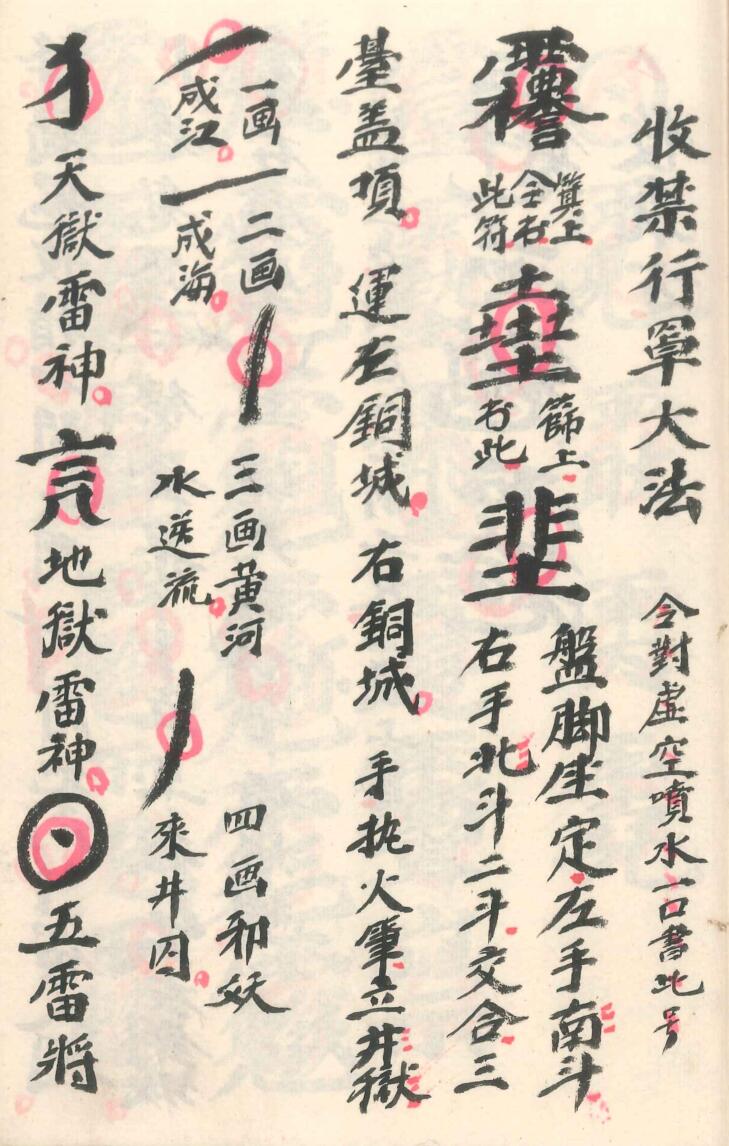 收禁行罩大法
令對虛空噴水一口書此号
箕上
令书
此符
篩上
书此
盤脚坐定左手南斗
右手北斗二斗交合三
臺盖項 運左銅城 右銅城 手执火筆立井獄
一画
成江
二画
成海
三画黄河
水逆流
四画邪妖
來井囚
犭天獄雷神 言 地獄雷神 五雷將